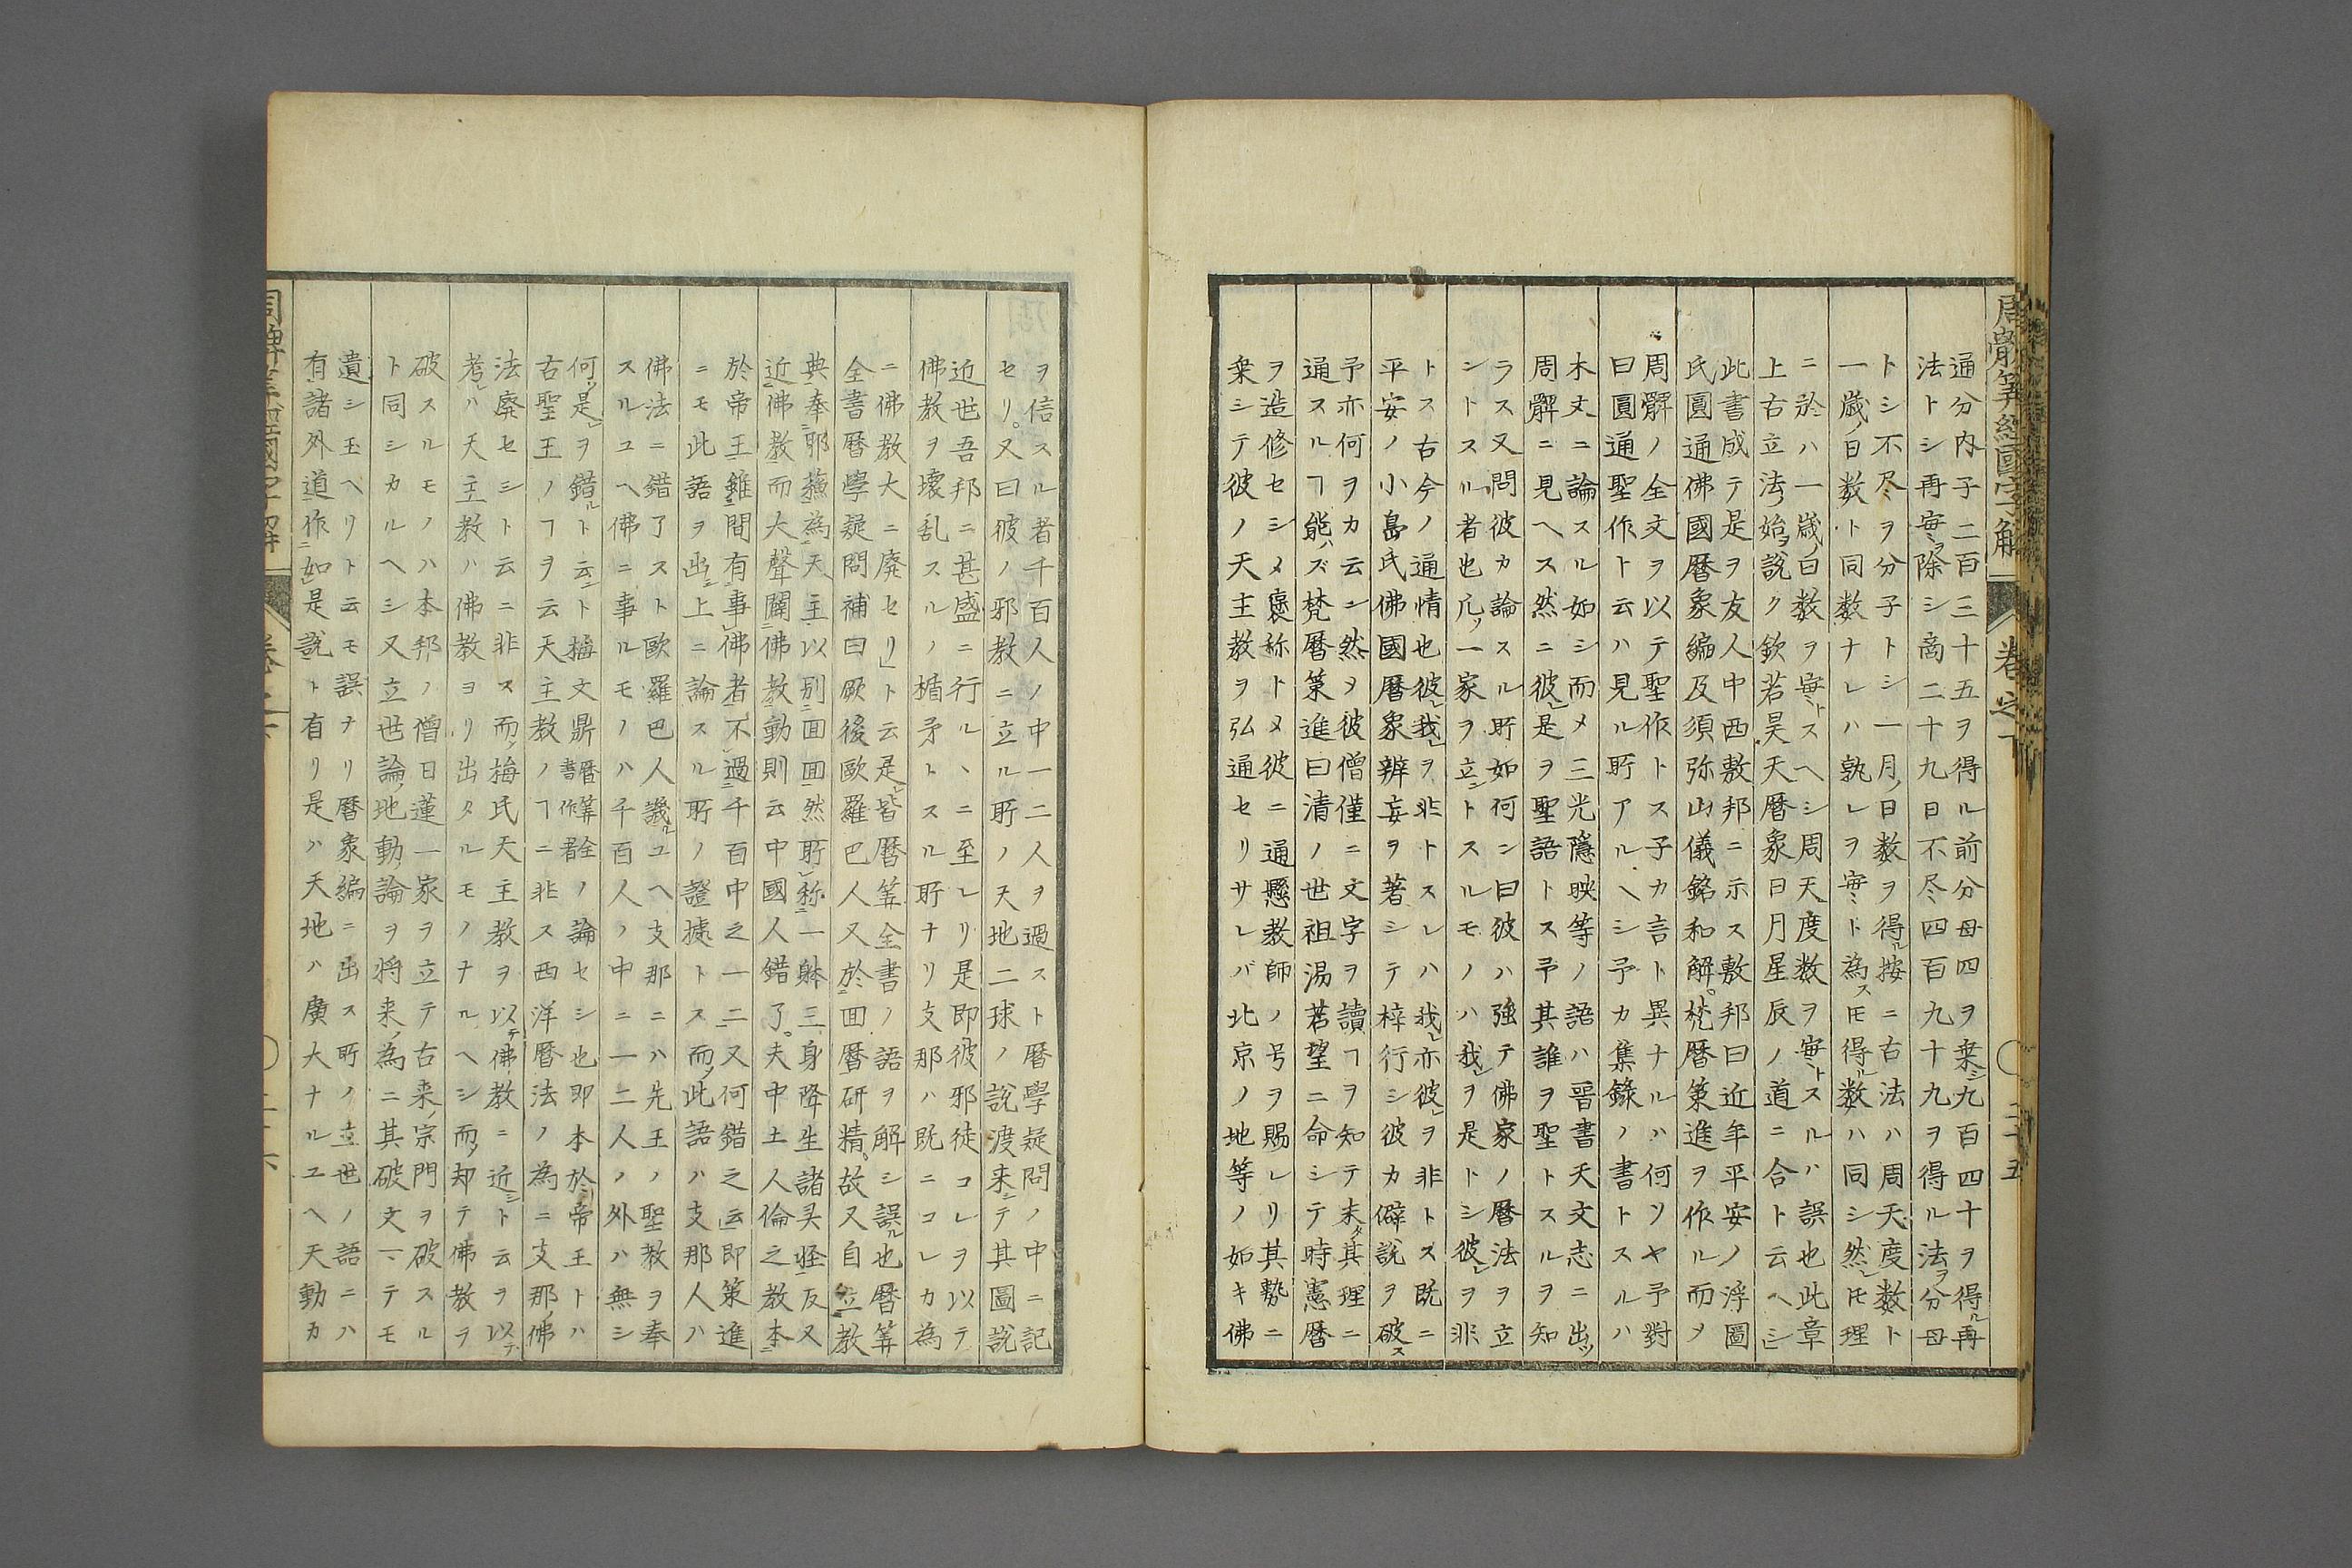 周髀筭經國字解 卷之下 ○ 二十五
通分内子二百三十五ヲ得ル前分母四ヲ乗シ九百四十ヲ得ル再
法トシ再ヒ除シ商二十九日不尽四百九十九ヲ得ル法ヲ分母
トシ不尽ヲ分子トシ一月ノ日数ヲ得ル按ニ古法ハ周天度数ト
一歳ノ日数ト同数ナレハ孰レヲ実ト為スㇳモ得ル数ハ同シ然レㇳモ理
ニ於ハ一歳ノ日数ヲ実トスヘシ周天度数ヲ実トスルハ誤也此章
上古立法ノ始ヲ説ク欽若昊天暦象日月星辰ノ道ニ合ト云ヘシ
此書成テ是ヲ友人中西敷邦ニ示ス敷邦曰近年平安ノ浮圖
氏圓通佛國暦象編及須弥山儀銘和解梵暦策進ヲ作ル而メ
周髀ノ全文ヲ以テ聖作トス子カ言ト異ナルハ何ソヤ予對
曰圓通聖作ト云ハ見ル所アルヘシ予カ集録ノ書トスルハ
木丈ニ論スル如シ而メ三光隱映等ノ語ハ晋書天文志ニ出ツ
周髀ニ見ヘス然ニ彼是ヲ聖語トス予其誰ヲ聖トスルヲ知
ラス又問彼カ論スル所如何ン曰彼ハ強テ佛家ノ暦法ヲ立
ントスル者也凡ソ一家ヲ立ントスルモノハ我ヲ是トシ彼ヲ非
トス古今ノ通情也彼我ヲ非トスレハ我亦彼ヲ非トス既ニ
平安ノ小島氏佛國暦象辨妄ヲ著シテ梓行シ彼カ僻説ヲ破ス
予亦何ヲカ云ン然ヲ彼僧僅ニ文字ヲ讀ヿヲ知テ未タ其理ニ
通スルヿ能ハズ梵暦策進曰清ノ世祖湯若望ニ命シテ時憲暦
ヲ造修セシメ褒称トメ彼ニ通懸教師ノ号ヲ賜レリ其勢ニ
乗シテ彼ノ天主教ヲ弘通セリサレバ北京ノ地等ノ如キ佛
ヲ信スル者千百人ノ中一二人ヲ過スト暦學疑問ノ中ニ記
セリ。又曰彼ノ邪教ニ立ル所ノ天地二球ノ説渡来シテ其圖説
近世吾邦ニ甚盛ニ行ル丶ニ至レリ是即彼邪徒コレヲ以テ
佛教ヲ壊乱スルノ楯矛トスル所ナリ支那ハ既ニコレカ為
ニ佛教大ニ廃セリト云是皆暦筭全書ノ語ヲ解シ誤ル也暦筭
全書暦學疑問補曰厥後歐羅巴人又於回暦研精。故又自立教
典奉耶蘇為天主以別回回然所称一躰三身降生諸異怪反又
近佛教而大聲闢佛教動則云中國人錯了。夫中土人倫之教本
於帝王雖間有事佛者不過千百中之一二又何錯之云即策進
ニモ此語ヲ出ニ上ニ論スル所ノ證據トス而ノ此語ハ支那人ハ
佛法ニ錯了スト歐羅巴人譏ルユヘ支那ニハ先王ノ聖教ヲ奉
スルユヘ佛ニ事ルモノハ千百人ノ中ニ一二人ノ外ハ無シ
何ソ是ヲ錯ルト云ント梅文鼎暦筭全書作者ノ論セシ也即本於帝王トハ
古聖王ノヿヲ云天主教ノヿニ非ス西洋暦法ノ為ニ支那ノ佛
法廃セシト云ニ非ス而ノ梅氏天主教ヲ以テ佛教ニ近シト云ヲ以テ
考レハ天主教ハ佛教ヨリ出タルモノナルヘシ而ノ却テ佛教ヲ
破スルモノハ本邦ノ僧日蓮一家ヲ立テ古来ノ宗門ヲ破スル
ト同シカルヘシ又立世論ノ地動論ヲ将来ノ為ニ其破文一テモ
遺シ玉ヘリト云モ誤ナリ暦象編ニ出ス所ノ立世ノ語ニハ
有諸外道作如是説ト有リ是ハ天地ハ廣大ナルユヘ天動カ